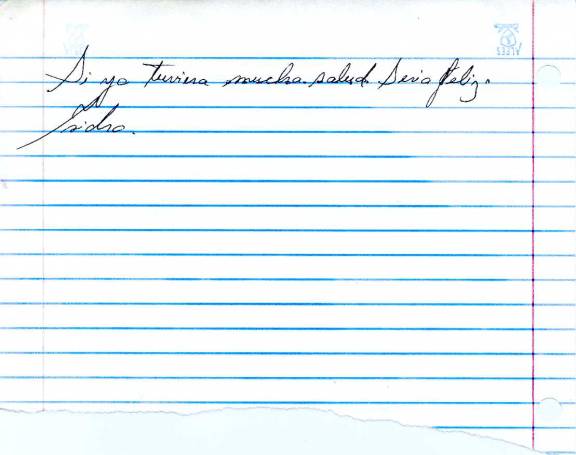 Si yo tuviera mucha salud. Seria feliz.
Isidro.